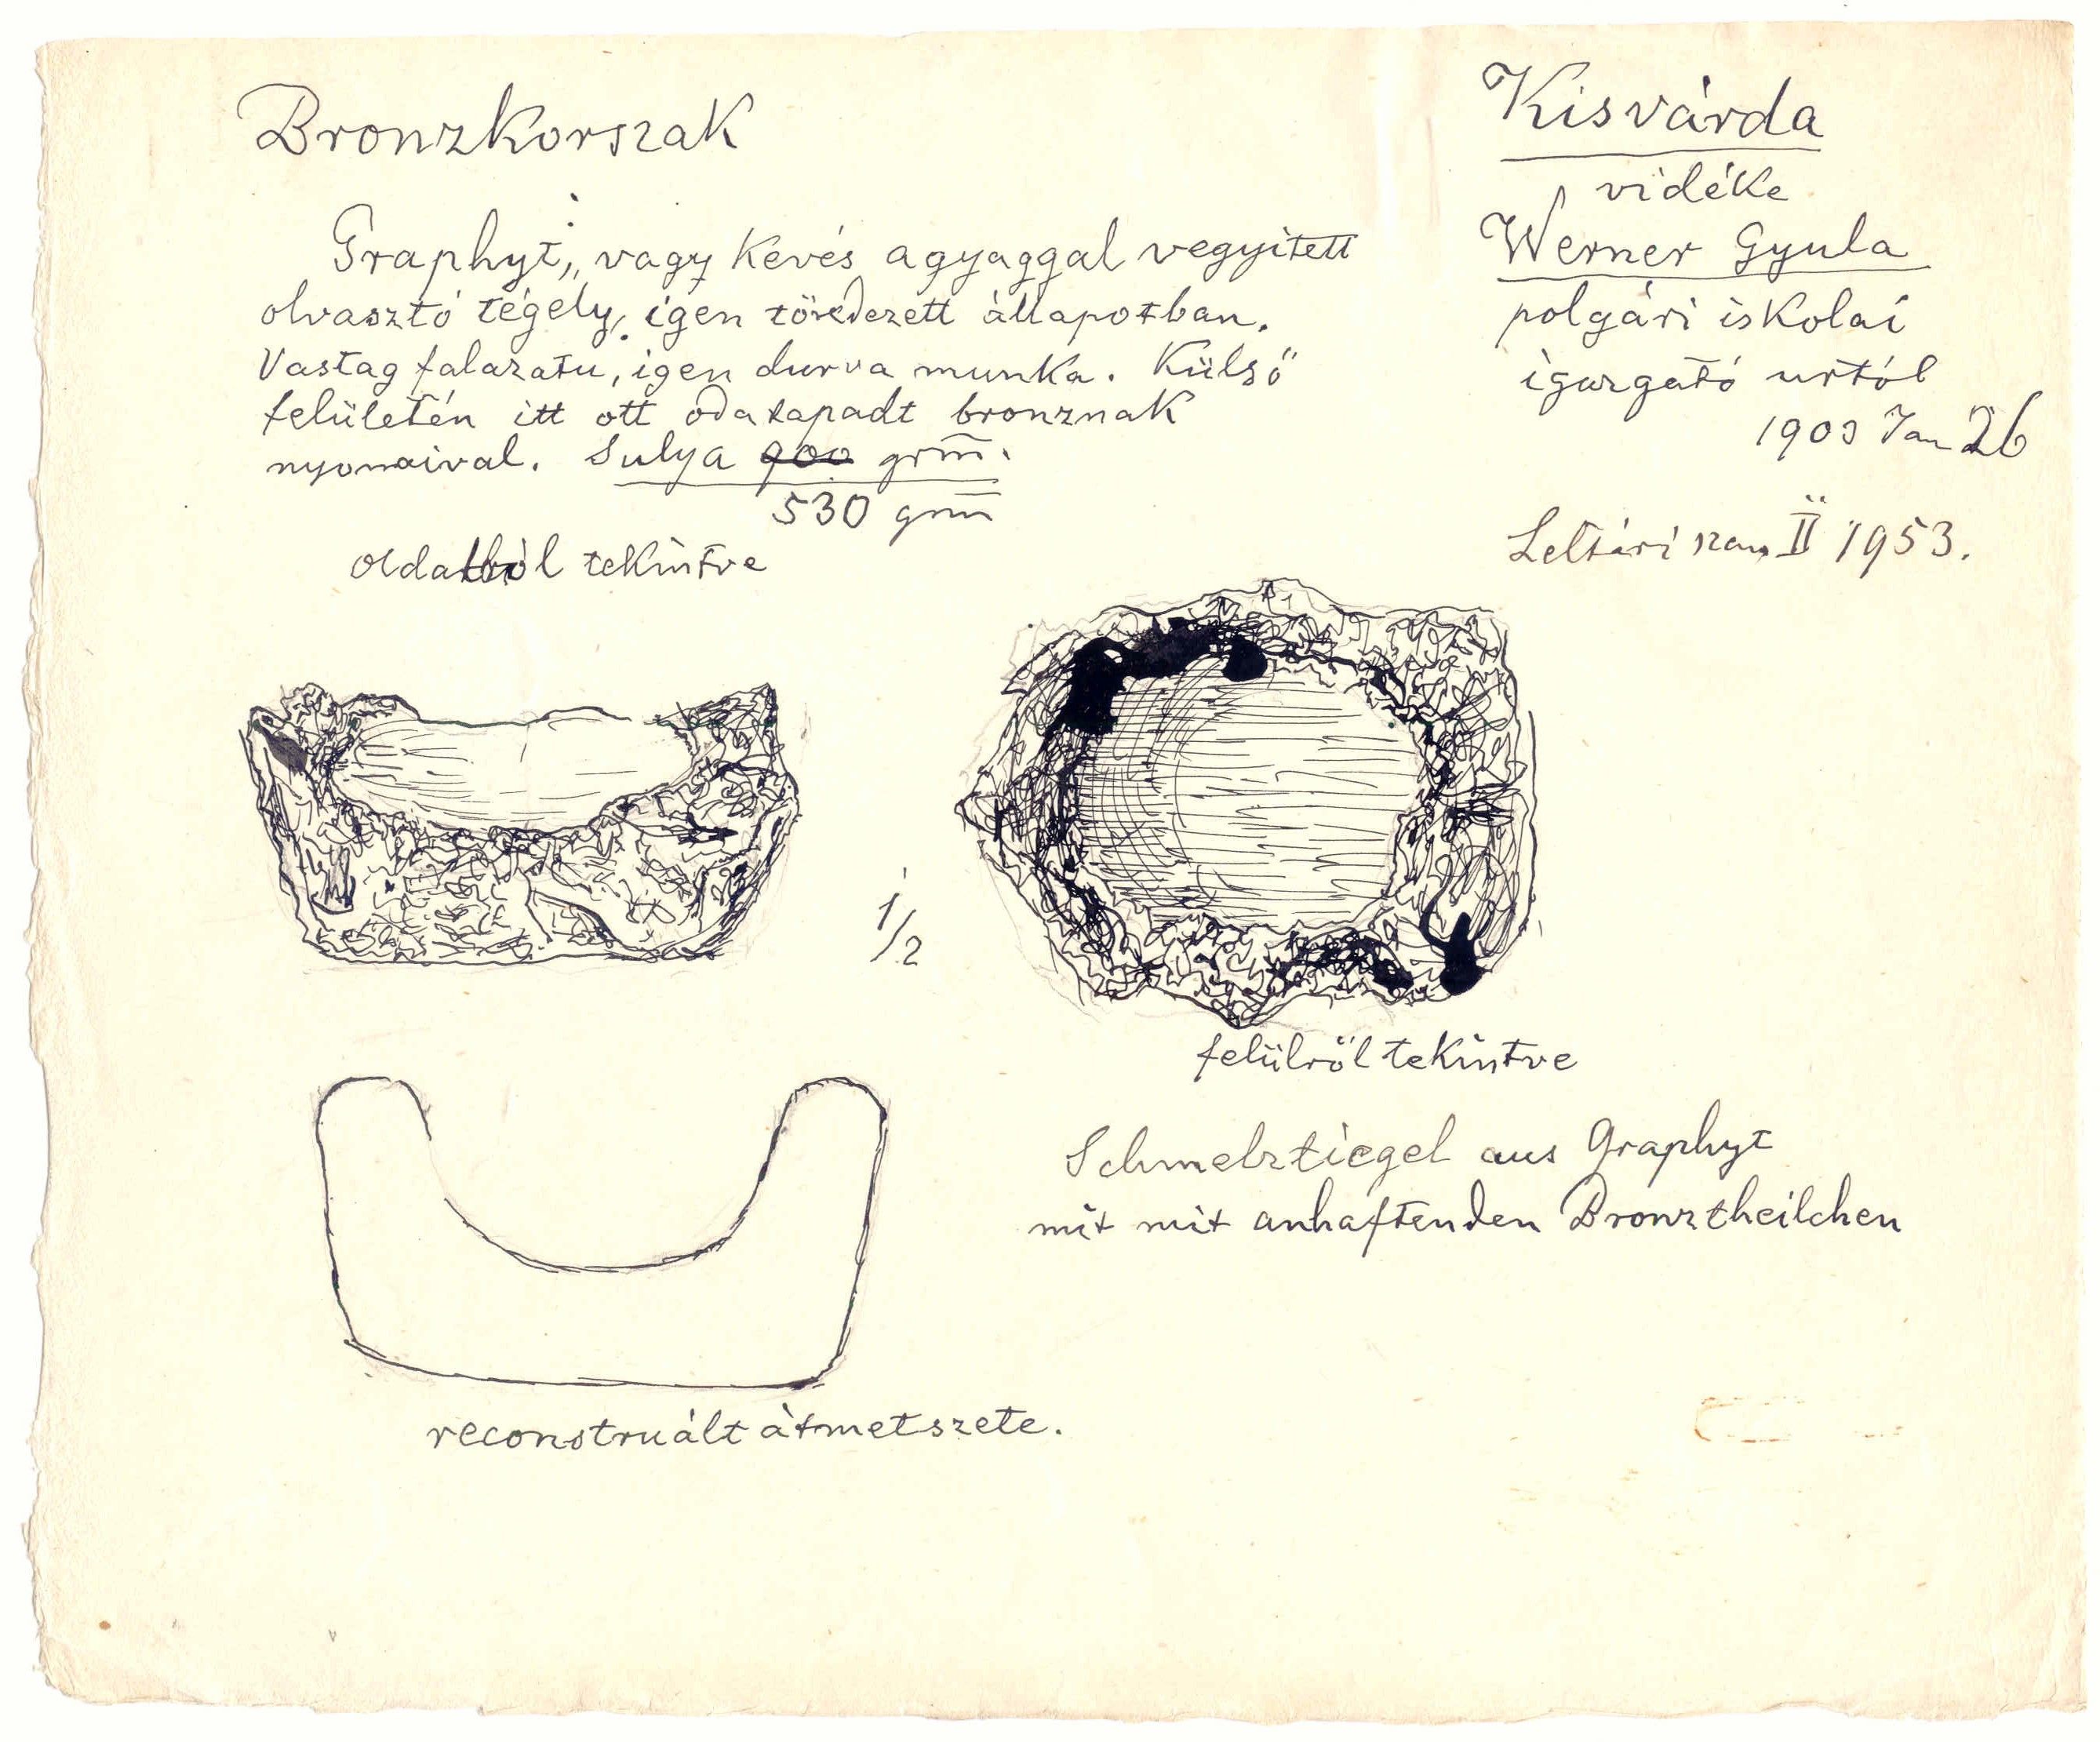 Bronzkorszak
Graphyt, vagy kevés agyaggal vegyitett
olvasztó tégely, igen töredezett állapotban.
Vastag falazatu, igen durva munka. Külső
felületén itt ott odatapadt bronznak
nyomaival. Sulya 900 grm̅.
530 grm̅
oldalról tekintve
Kisvárda
vidéke
Werner Gyula
polgári iskolai
igazgató urtól
1903 Jan 26
Leltári szam II 1953.
1/2
felülről tekintve
Schmelztiegel aus Graphyt
mit mit anhaftenden Bronztheilchen
reconstruált átmetszete.